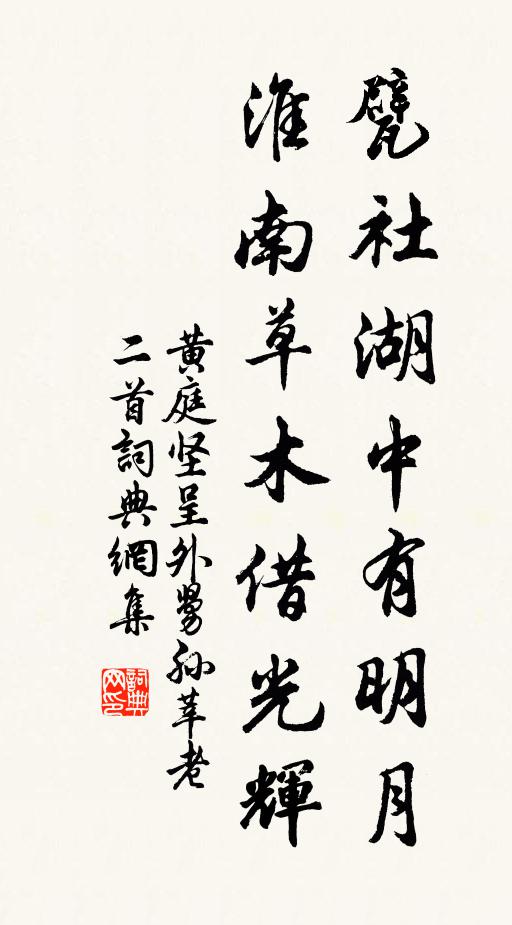 甓社湖中有明月
淮南草木借光輝
黃庭坚呈外舅孙莘老
二首詞典網集
詞典
网印